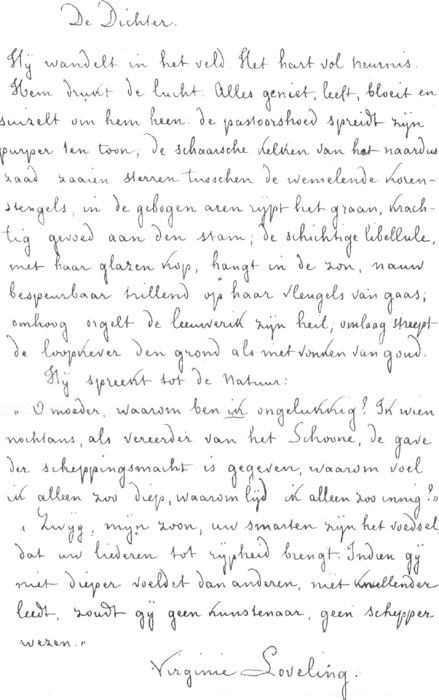 De Dichter.
Hij wandelt in het veld. Het hart vol deernis.
Hem drukt de lucht. Alles geniet, leeft, bloeit en
suizelt om hem heen: de pastoorshoed spreidt zijn
purper ten toon; de schaarsche kelken van het nardus
zaad zaaien sterren tusschen de wemelende koren-
stengels, in de gebogen aren rijpt het graan, krach-
tig gevoed aan den stam; de schichtige libellule,
met haar glazen kop, hangt in de zon, nauw
bespeurbaar trillend op haar vleugels van gaas;
omhoog orgelt de leeuwerik zijn heil; omlaag streept
de loopkever den grond als met vonken van goud.
Hij spreekt tot de Natuur:
"O moeder, waarom ben ik ongelukkig? Ik wien
nochtans, als vereerder van het Schoone, de gave
der scheppingsmacht is gegeven, waarom voel
ik alleen zoo diep, waarom lijd ik alleen zoo innig?"
"Zwijg, mijn zoon, uw smarten zijn het voedsel
dat uw liederen tot rijpheid brengt. Indien gij
niet dieper voeldet dan anderen, niet knellender
leedt, zoudt gij geen kunstenaar, geen schepper
wezen."
Virginie Loveling.